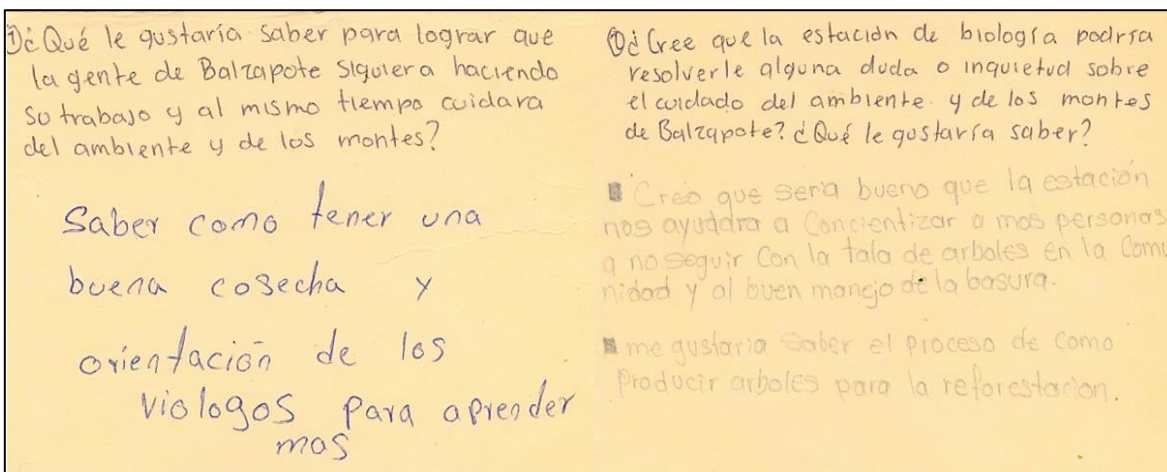 ①¿Qué le gustaría saber para lograr que
la gente de Balzapote siguiera haciendo
su trabajo y al mismo tiempo cuidara
del ambiente y de los montes?
Saber como tener una
buena cosecha y
orientación de los
viologos para aprender
mas
①¿Cree que la estación de biología podría
resolverle alguna duda o inquietud sobre
el cuidado del ambiente y de los montes
de Balzapote? ¿Qué le gustaría saber?
Creo que seria bueno que la estación
nos ayudara a Concientizar a mas personas
a no seguir con la tala de arboles en la Comu
nidad y al buen manejo de la basura.
me gustaria saber el proceso de como
Producir arboles para la reforestacion.